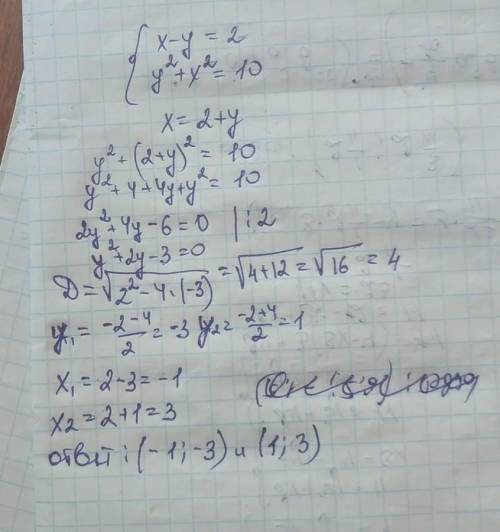 x-y=2
y²+x²=10
x=2+y
y²+(2+y)²=10
y²+4+4y+y²=10
2y²+4y-6=0 |:2
y²+2y-3=0
D=√2²-4·(-3) =√4+12=√16 =4
y₁= -2-4/2 =-3 y₂= -2+4/2 =1
x₁=2-3=-1
x₂=2+1=3
ответ: (-1;-3) и (1;3)